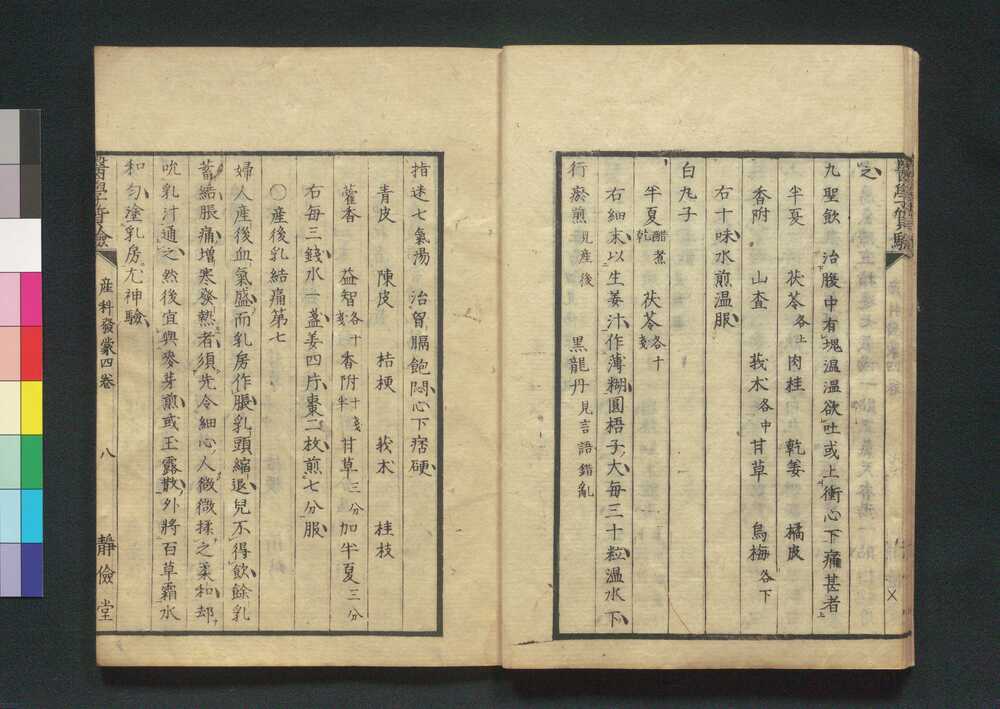 之
九聖飲 治腹中有塊温温欲吐或上衝心下痛甚者
半夏 茯苓各上 肉桂 乾姜 橘皮
香附 山査 莪朮各中 甘草 烏梅各下
右十味水煎温服
白丸子
半夏醋煮乾 茯苓各十戔
右細末以生姜汁作薄糊圓梧子大每三十粒温水下
行瘀煎見産後 黒龍丹見言語錯亂
指迷七氣湯 治胷膈飽悶心下痞硬
青皮 陳皮 桔梗 莪朮 桂枝
藿香 益智各十戔 香附十戔半 甘草三分 加半夏三分
右每三錢水一盞姜四片棗二枚煎七分服
〇産後乳結痛第七
婦人産後血氣盛而乳房作脹乳頭縮退兒不得飲餘乳
蓄結脹痛增寒發熱者須先令細心人微微揉之柔和却
吮乳汁通之然後宜與麥芽煎或玉露散外將百草霜水
和匀塗乳房尤神驗
産科發蒙四卷
八
靜儉堂